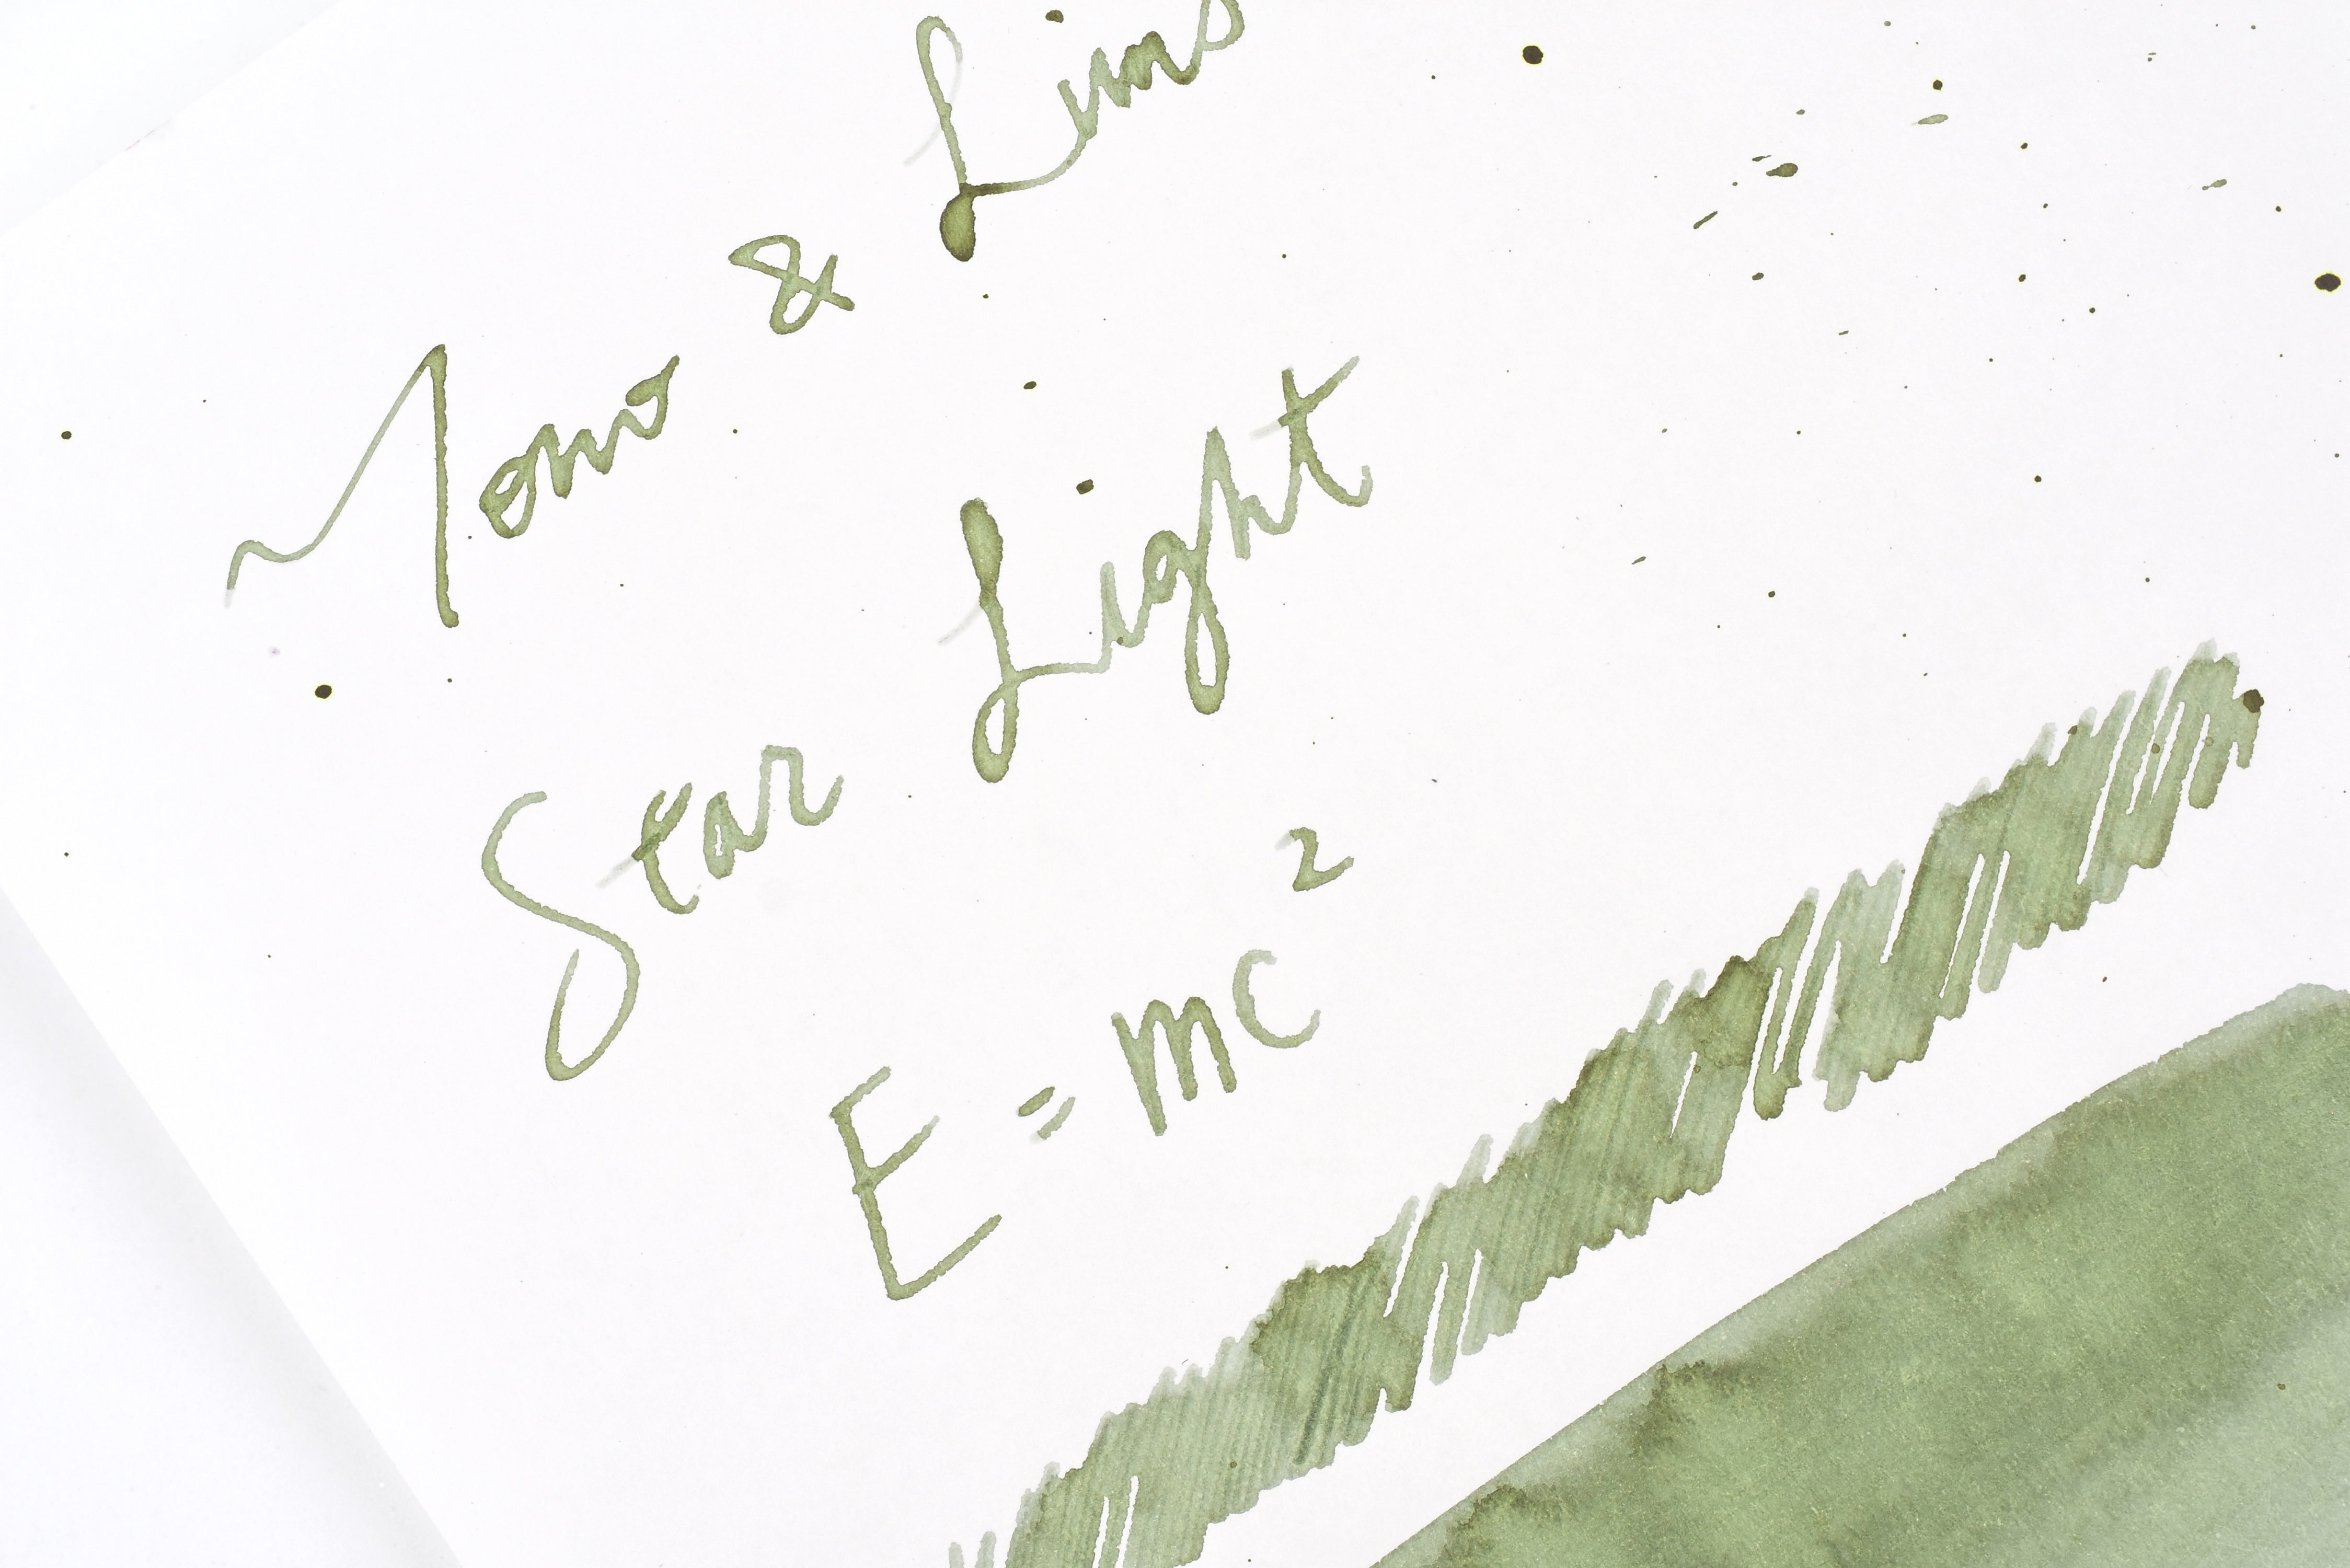 Toms &
Star Light
E = mc²